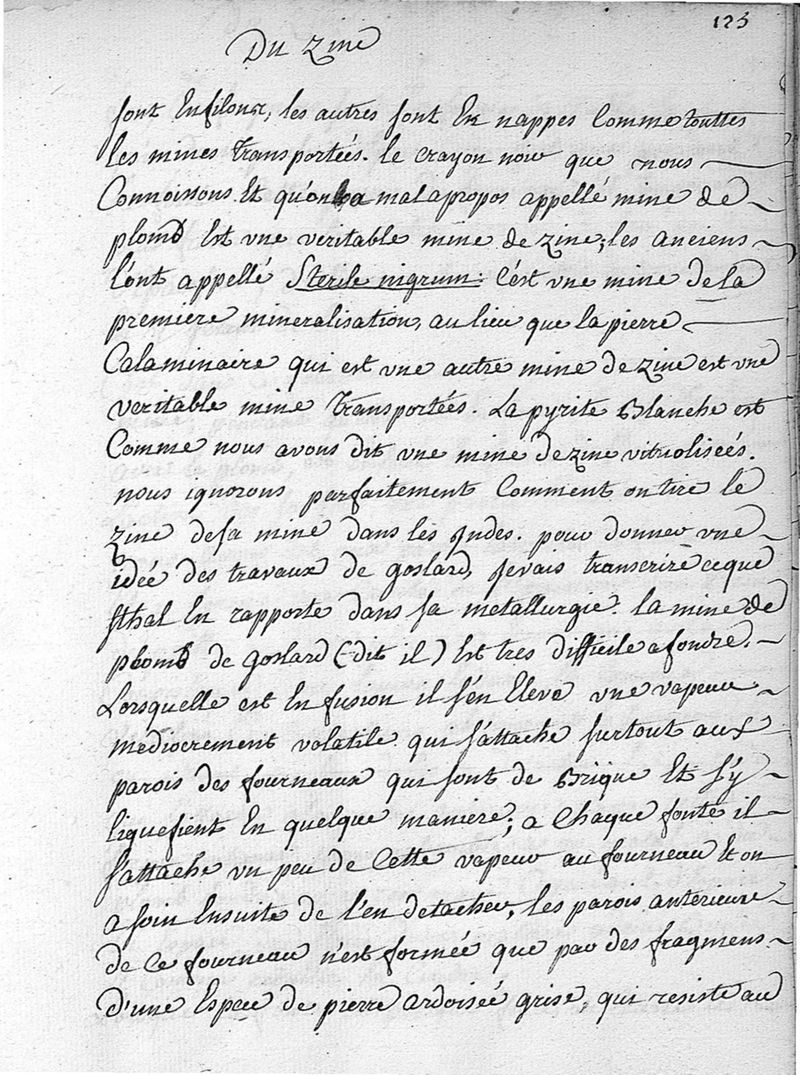 123
Du Zinc
sont Enfilons, les autres sont En nappes Comme touttes
les mines Transportées. le crayon noir que nous
Connoissons Et qu'on a mal apropos appellé mine de
plomb Est vne veritable mine de zinc; les anciens
l'ont appellé Sterile nigrum. C'est vne mine de la
premiere mineralisation, au lieu que la pierre
Calaminaire qui est vne autre mine de zinc est vne
veritable mine Transportées. La pyrite Blanche est
Comme nous avons dit vne mine de zinc vitriolisées.
nous ignorons parfaitement Comment on tire le
zinc de sa mine dans les Indes. pour donner vne
idée des travaux de goslard, je vais transcrire ce que
sthal En rapporte dans sa metallurgie. la mine de
plomb de goslard (dit il) Est tres difficile a fondre.
Lorsquelle est En fusion il s'en Eleve vne vapeur
mediocrement volatile qui s'attache surtout aux
parois des fourneaux qui sont de Brique Et s'y
liquefient En quelque maniere; a Chaque fonte il
s'attache vn peu de Cette vapeur au fourneau Et on
a soin Ensuite de l'en detacher, les parois anterieure
de Ce fourneau n'est formée que par des fragmens
d'une Espece de pierre ardoisée grise, qui resiste au